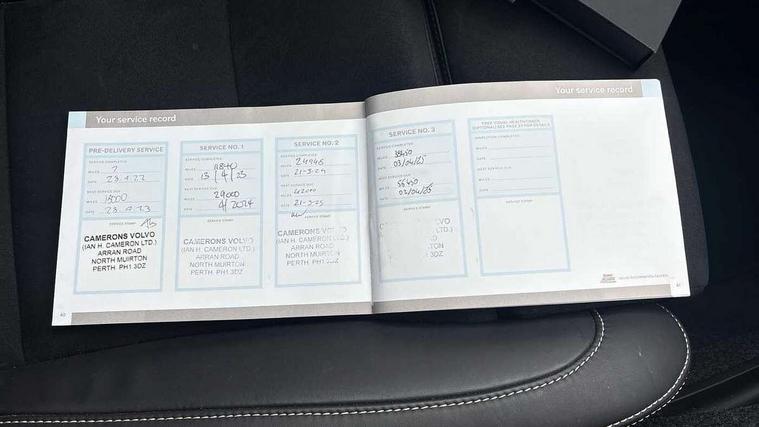 Your service record
PRE-DELIVERY SERVICE
SERVICE COMPLETED
MILES 7
DATE
NEXT SERVICE DUE
MILES 18000
DATE
SERVICE STAMP
CAMERONS VOLVO
(IAN H. CAMERON LTD.)
ARRAN ROAD
NORTH MUIRTON
PERTH. PH1 3DZ
SERVICE NO. 1
SERVICE COMPLETED
MILES
DATE 13/4/23
NEXT SERVICE DUE
MILES 29000
DATE 4/2024
SERVICE STAMP
CAMERONS VOLVO
(IAN H. CAMERON LTD.)
ARRAN ROAD
NORTH MUIRTON
PERTH. PH1 3DZ
SERVICE NO. 2
SERVICE COMPLETED
MILES 24946
DATE 21-3-24
NEXT SERVICE DUE
MILES 42000
DATE 21-3-25
SERVICE STAMP
CAMERONS VOLVO
(IAN H. CAMERON LTD.)
ARRAN ROAD
NORTH MUIRTON
PERTH. PH1 3DZ
Your service record
SERVICE NO. 3
SERVICE COMPLETED
MILES
DATE 03/04/25
NEXT SERVICE DUE
MILES
DATE
SERVICE STAMP
VO
LTD.)
TON
3DZ
FREE VISUAL HEALTH CHECK
(OPTIONAL) SEE PAGE 27 FOR DETAILS
INSPECTION COMPLETED
MILES
DATE
NEXT SERVICE DUE
MILES
DATE
SERVICE STAMP
40
41